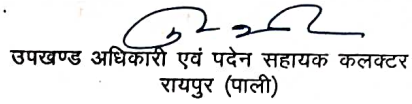 उपखण्ड अधिकारी एवं पदेन सहायक कलक्टर
रायपुर (पाली)